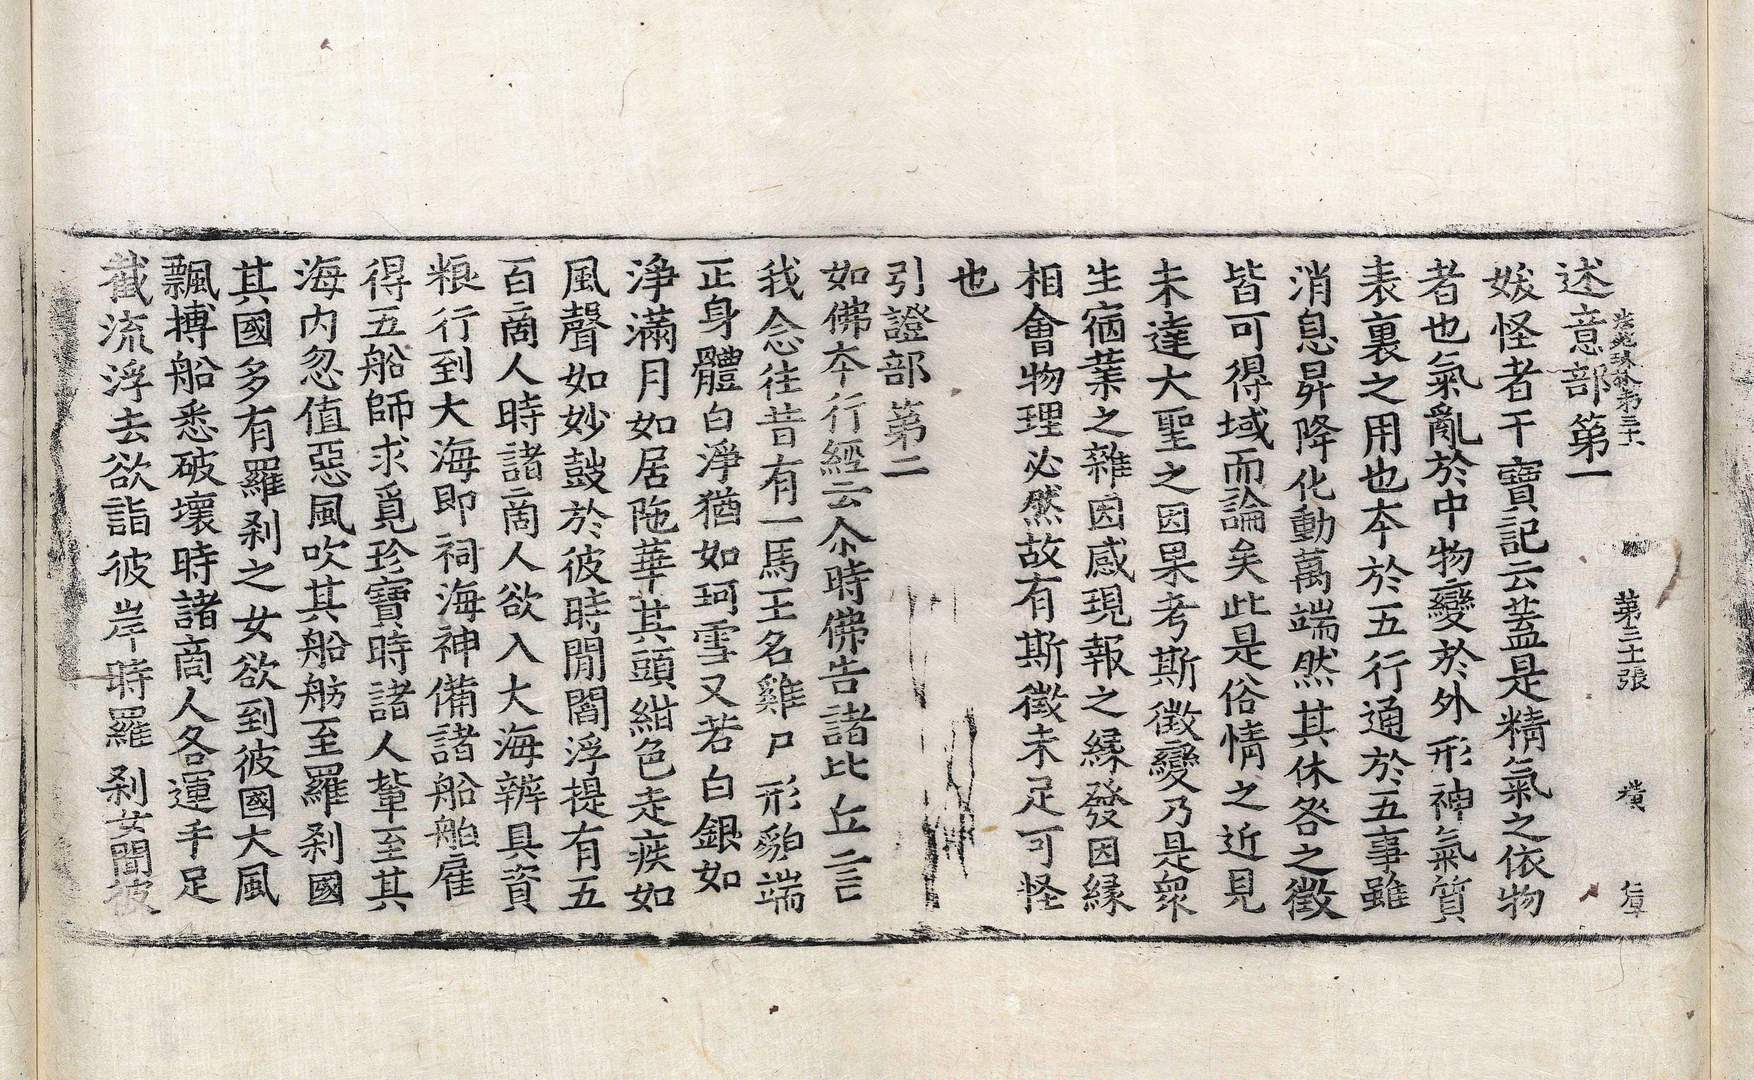 法苑珠林第三十一 第三十張 橫
述意部第一
妖怪者干寶記云蓋是精氣之依物
者也氣亂於中物變於外形神氣質
表裏之用也本於五行通於五事雖
消息昇降化動萬端然其休咎之徵
皆可得域而論矣此是俗情之近見
未達大聖之因果考斯徵變乃是衆
生宿業之雜因感現報之緣發因緣
相會物理必然故有斯徵未足可怪
也
引證部第二
如佛本行經云尒時佛告諸比丘言
我念往昔有一馬王名雞尸形貌端
正身體白淨猶如珂雪又若白銀如
淨滿月如居陁華其頭紺色走疾如
風聲如妙鼓於彼時閻浮提有五
百啇人時諸啇人欲入大海辦具資
粮行到大海即祠海神備諸船舶雇
得五船師求覓珍寶時諸人輩至其
海内忽值惡風吹其船舫至羅刹國
其國多有羅刹之女欲到彼國大風
飄搏船悉破壞時諸啇人各運手足
截流浮去欲詣彼岸時羅刹女聞彼